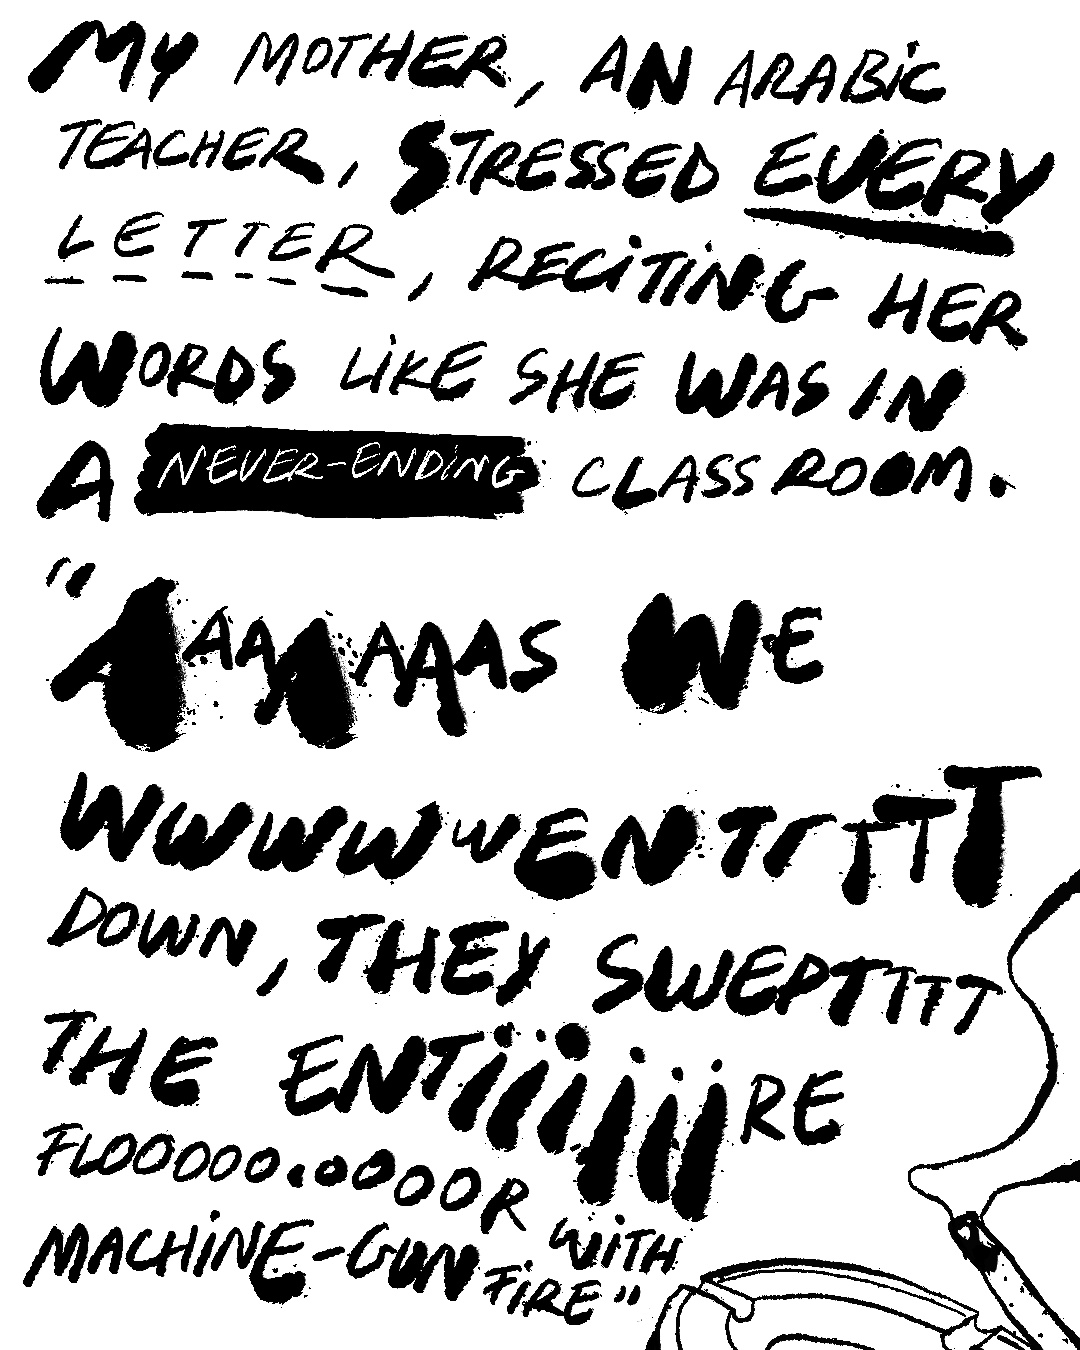 MY MOTHER, AN ARABiC
TEACHER, STRESSED EVERY
LETTER, RECiTiNG HER
WORDS LiKE SHE WAS IN
A NEVER-ENDiNG CLASSROOM.
"AAAAAAAAS WE
WWWWWENTTTTTT
DOWN, THEY SWEPTTTT
THE ENTiiiiiiiRE
FLOOOOOOOOOOR WiTH
MACHiNE-GUN FiRE"